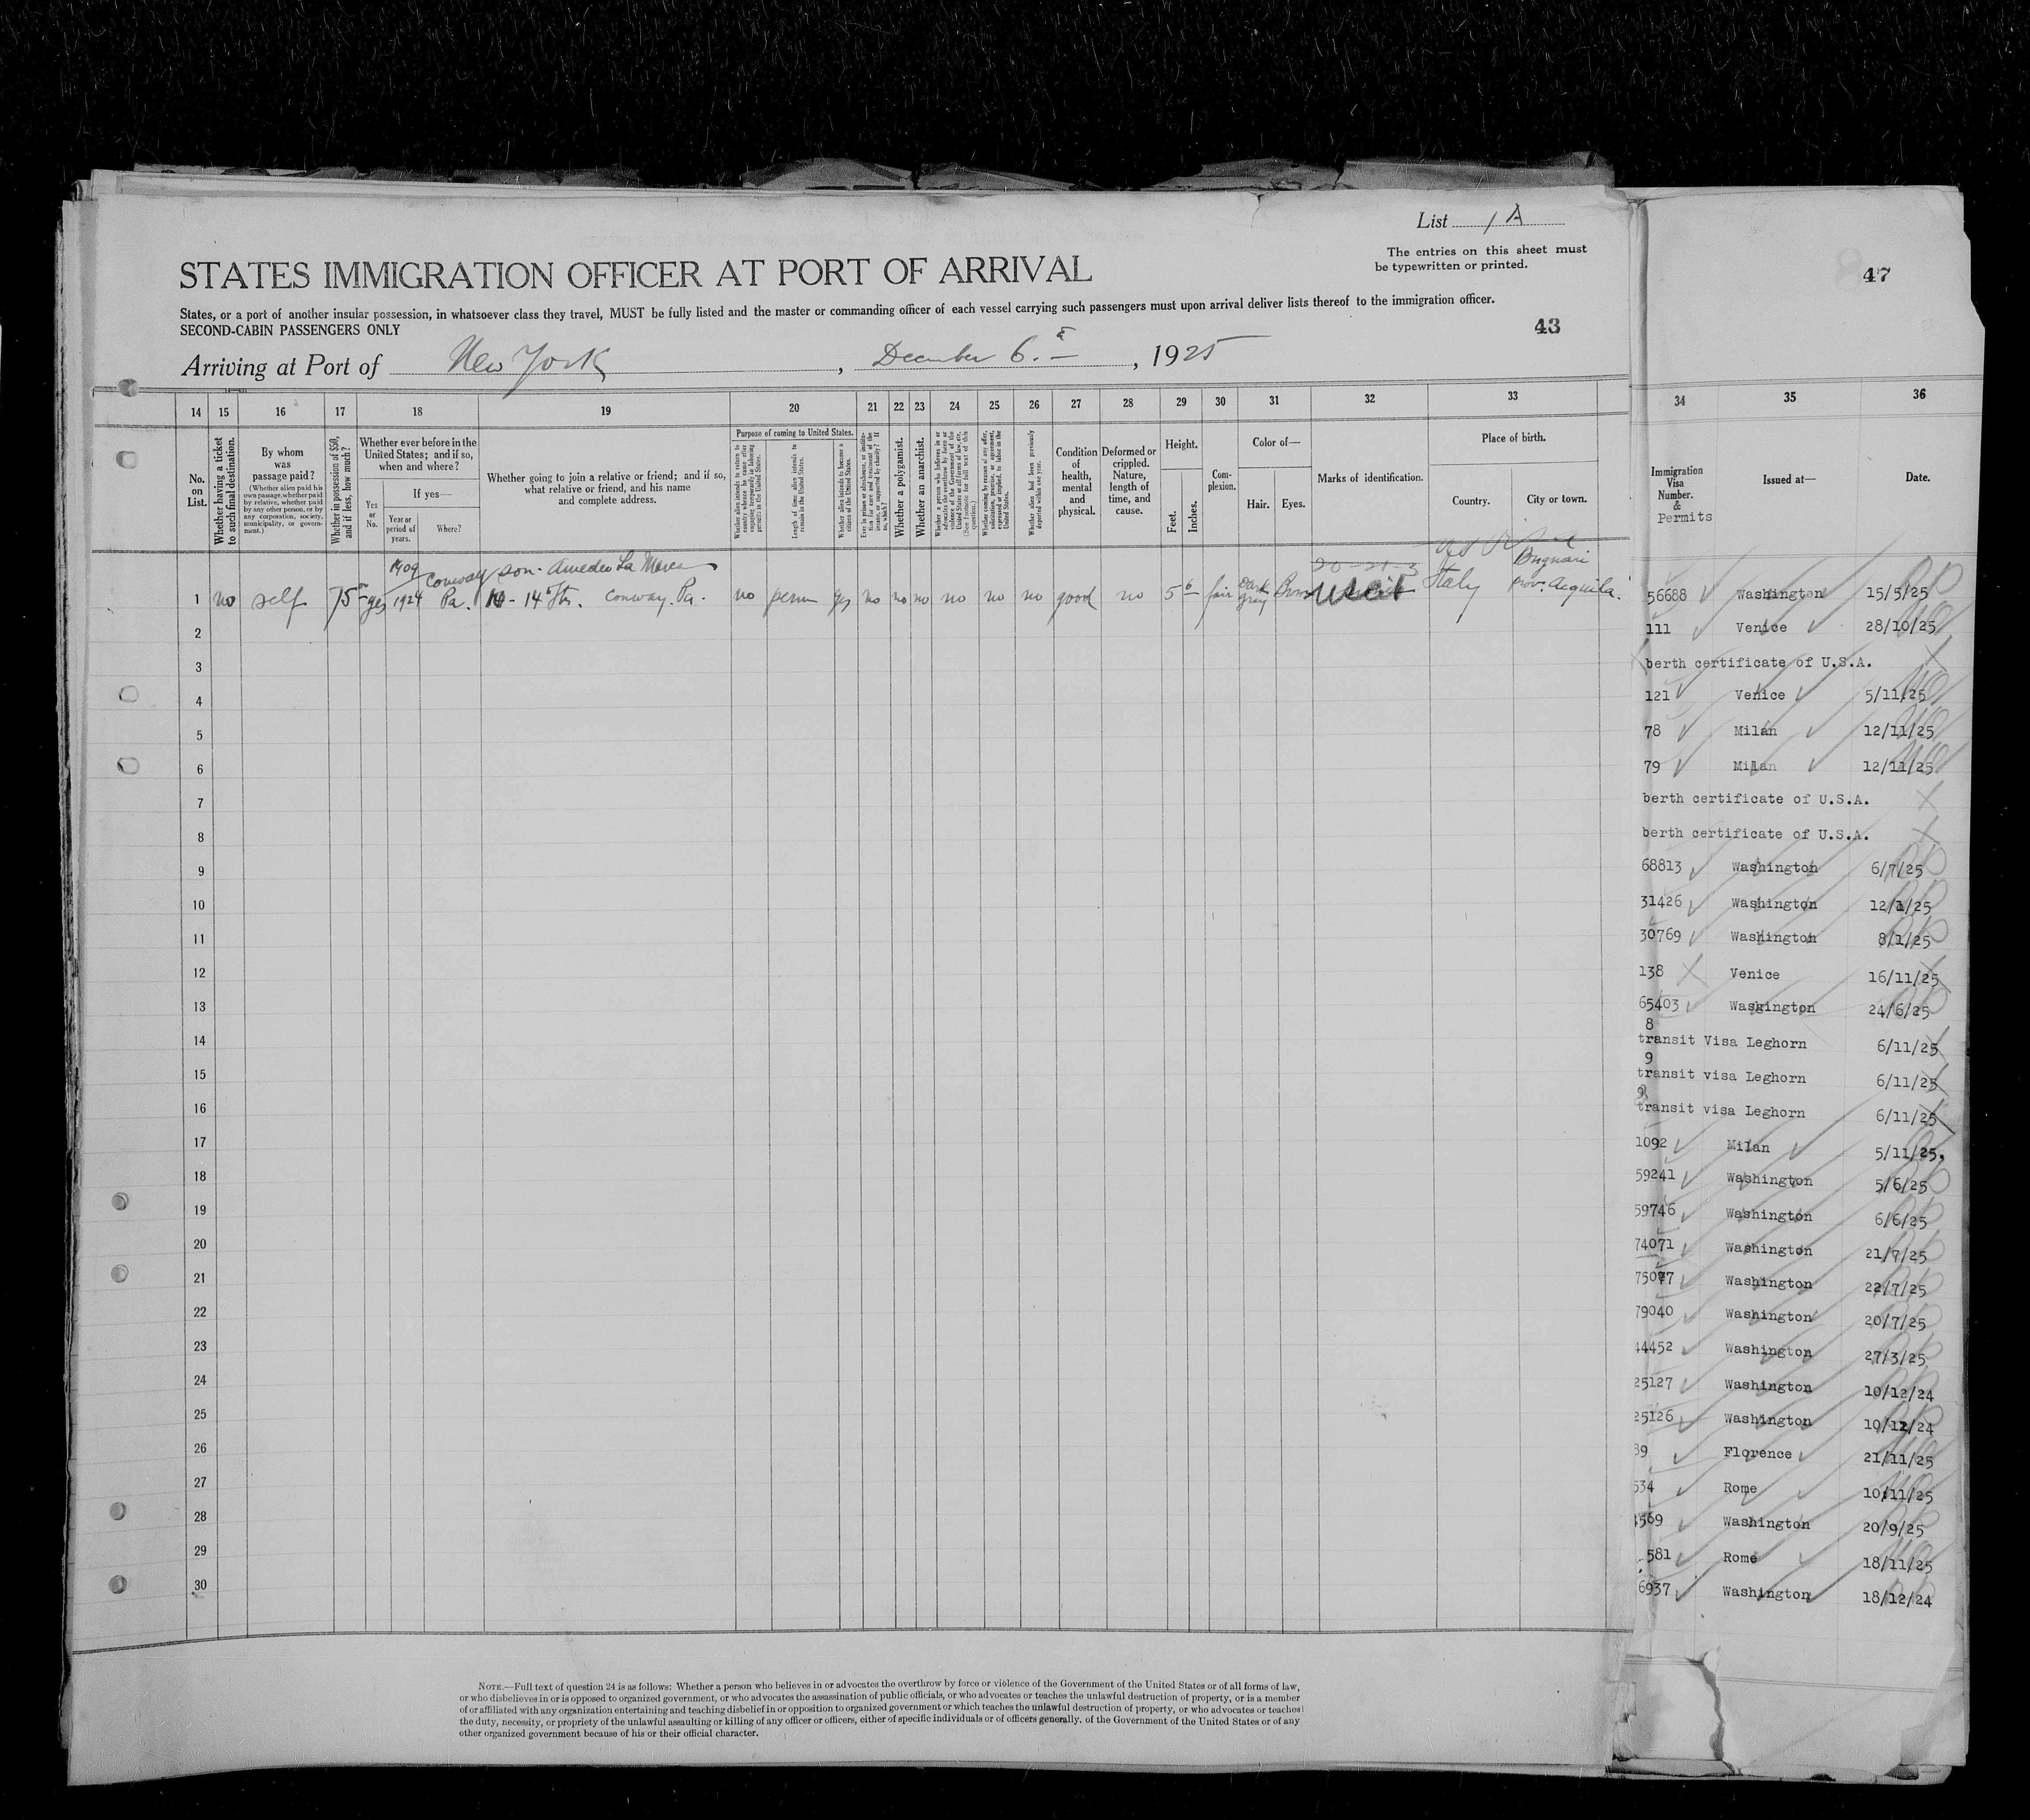 List 1A
The entries on this sheet must
be typewritten or printed.
47
STATES IMMIGRATION OFFICER AT PORT OF ARRIVAL
States, or a port of another insular possession, in whatsoever class they travel, MUST be fully listed and the master or commanding officer of each vessel carrying such passengers must upon arrival deliver lists thereof to the immigration officer.
SECOND-CABIN PASSENGERS ONLY
43
Arriving at Port of New York, December 6, 1925
14 15 16 17 18 19 20 21 22 23 24 25 26 27 28 29 30 31 32 33 34 35 36
No. on List.
Whether having a ticket to such final destination.
By whom was passage paid?
(Whether alien paid his own passage, whether paid by relative, whether paid by any other person, or by any corporation, society, municipality, or government.)
Whether in possession of $50, and if less, how much?
Whether ever before in the United States; and if so, when and where?
Yes or No.
If yes—
Year or period of years.
Where?
Whether going to join a relative or friend; and if so, what relative or friend, and his name and complete address.
Purpose of coming to United States.
Length of time alien intends to remain in the United States.
Whether alien intends to become a citizen of the United States.
Whether a polygamist.
Whether an anarchist.
Whether alien had been previously deported within one year.
Condition of health, mental and physical.
Deformed or crippled. Nature, length of time, and cause.
Height.
Feet.
Inches.
Complexion.
Color of—
Hair.
Eyes.
Marks of identification.
Place of birth.
Country.
City or town.
Immigration Visa Number. & Permits
Issued at—
Date.
1909 Conway son - Amedeo La Marca
1 no self 75 yes 1924 Pa. 10 - 14 Str. Conway. Pa. no perm yes no no no no no no good no 5 6 fair Dark gray Brown Italy Prov. Aequila
2
3
4
5
6
7
8
9
10
11
12
13
14
15
16
17
18
19
20
21
22
23
24
25
26
27
28
29
30
56688 Washington 15/5/25
111 Venice 28/10/25
berth certificate of U.S.A.
121 Venice 5/11/25
78 Milan 12/11/25
79 Milan 12/11/25
berth certificate of U.S.A.
berth certificate of U.S.A.
68813 Washington 6/7/25
31426 Washington 12/1/25
30769 Washington 8/1/25
138 Venice 16/11/25
65403 Waskington 24/6/25
8
transit Visa Leghorn 6/11/25
9
transit visa Leghorn 6/11/25
transit visa Leghorn 6/11/25
1092 Milan 5/11/25.
59241 Washington 5/6/25
59746 Washington 6/6/25
74071 Washington 21/7/25
75077 Washington 22/7/25
79040 Washington 20/7/25
44452 Washington 27/3/25
25127 Washington 10/12/24
25126 Washington 10/12/24
89 Florence 21/11/25
534 Rome 10/11/25
4569 Washington 20/9/25
581 Rome 18/11/25
6937 Washington 18/12/24
NOTE.—Full text of question 24 is as follows: Whether a person who believes in or advocates the overthrow by force or violence of the Government of the United States or of all forms of law,
or who disbelieves in or is opposed to organized government, or who advocates the assassination of public officials, or who advocates or teaches the unlawful destruction of property, or is a member
of or affiliated with any organization entertaining and teaching disbelief in or opposition to organized government or which teaches the unlawful destruction of property, or who advocates or teaches
the duty, necessity, or propriety of the unlawful assaulting or killing of any officer or officers, either of specific individuals or of officers generally, of the Government of the United States or of any
other organized government because of his or their official character.